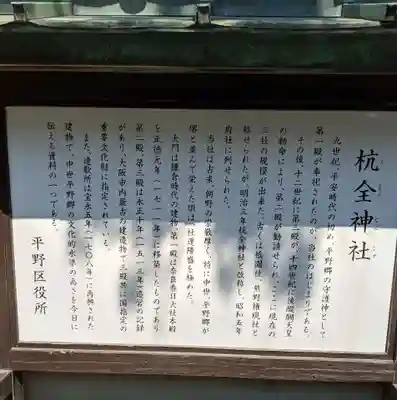 杭全神社
九世紀、平安時代の初め、平野郷の守護神として
第一殿が奉祀されたのが、当社のはじまりである。
その後、十二世紀に第三殿が、十四世紀に後醍醐天皇
の勅命により、第二殿が勧請せられ、ここに現在の
三社の規模が出来た。古くは祇園社、熊野権現社と
称せられたが、明治三年杭全神社と改称し、昭和五年
府社に列せられた。
当社は古来、朝野の崇敬厚く、特に中世、平野郷が
堺と並んで栄えた頃は、社運隆盛を極めた。
大門は鎌倉時代の建物、第一殿は奈良春日大社本殿
を正徳元年(一七一一年)に移築したものであり
第二殿、第三殿は永正十年(一五一三年)造営の記録
があり、大阪市内最古の建造物で三殿共に国指定の
重要文化財に指定されている。
また、連歌所は宝永五年(一七〇八年)に再興された
建物で、中世平野郷の文化的水準の高さを今日に
伝える資料の一つである。
平野区役所